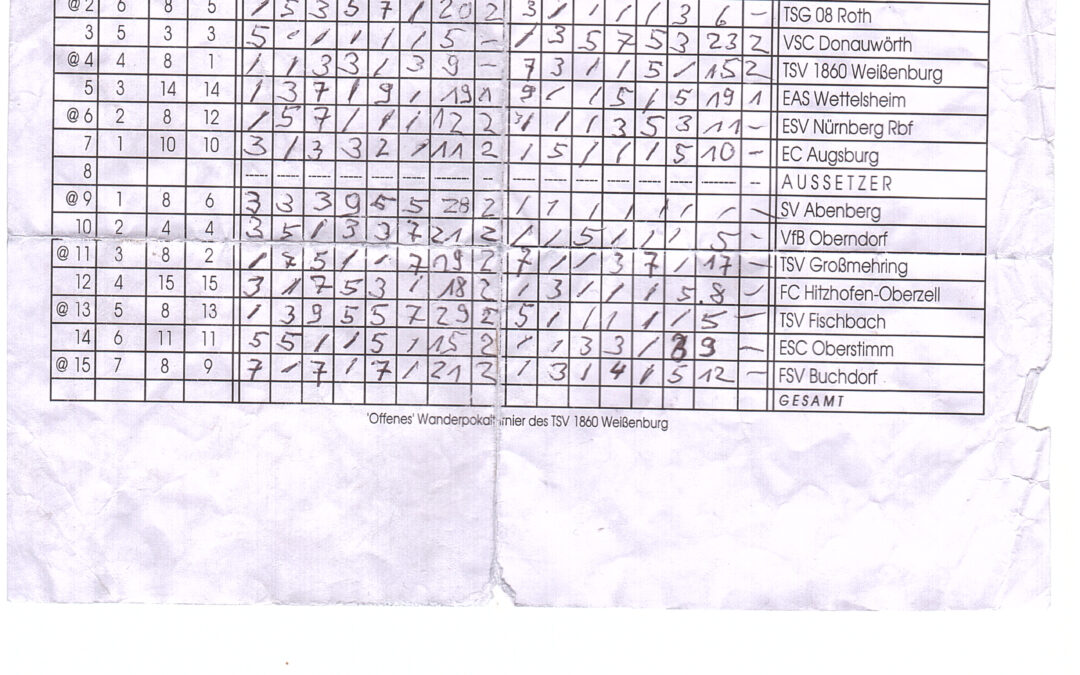 @ 2 6 8 5 / 5 3 5 7 / 20 2 3 / / / / 3 6 - TSG 08 Roth
3 5 3 3 5 - / / / / 5 - / 3 5 7 5 3 23 2 VSC Donauwörth
@ 4 4 8 1 / / 3 3 / 3 9 - 7 3 / / 5 / 15 2 TSV 1860 Weißenburg
5 3 14 14 / 3 7 / 9 / 19 1 9 / / 5 / 5 19 1 EAS Wettelsheim
@ 6 2 8 12 / 5 7 / / / 12 2 / / / 3 5 3 11 - ESV Nürnberg Rbf
7 1 10 10 3 / 3 3 2 / 11 2 / 5 / / / 5 10 - EC Augsburg
8 ---- ---- ---- ---- ---- ---- ------ -- ---- ---- ---- ---- ---- ---- ------ -- AUSSETZER
@ 9 1 8 6 3 3 3 9 5 5 28 2 / / / / / / / - SV Abenberg
10 2 4 4 3 5 / 3 3 7 21 2 / / 5 / / / 5 - VfB Oberndorf
@ 11 3 8 2 / 5 / / 7 19 2 7 / / 3 7 / 17 - TSV Großmehring
12 4 15 15 3 / 7 5 3 / 18 2 / 3 / / / 5 8 - FC Hitzhofen-Oberzell
@ 13 5 8 13 / 3 9 5 5 7 29 2 5 / / / / / 5 - TSV Fischbach
14 6 11 11 5 5 / / 5 / 15 2 / / 3 3 / 9 - ESC Oberstimm
@ 15 7 8 9 7 / 7 / 7 / 21 2 / 3 / 4 / 5 12 - FSV Buchdorf
GESAMT
'Offenes' Wanderpokalt rnier des TSV 1860 Weißenburg